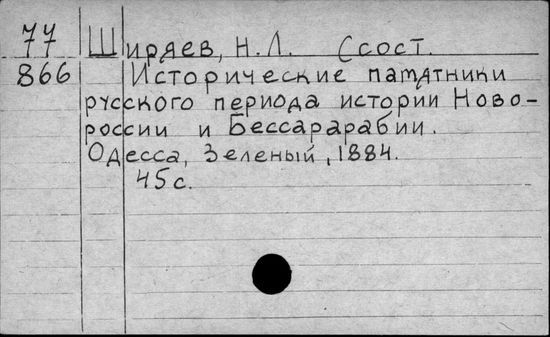 77 Ширяев, Н.Л. (сост.
866 Исторические памятники
русского периода истории Ново-
россии и Бессарарабии.
Одесса, Зеленый, 1884.
45с.